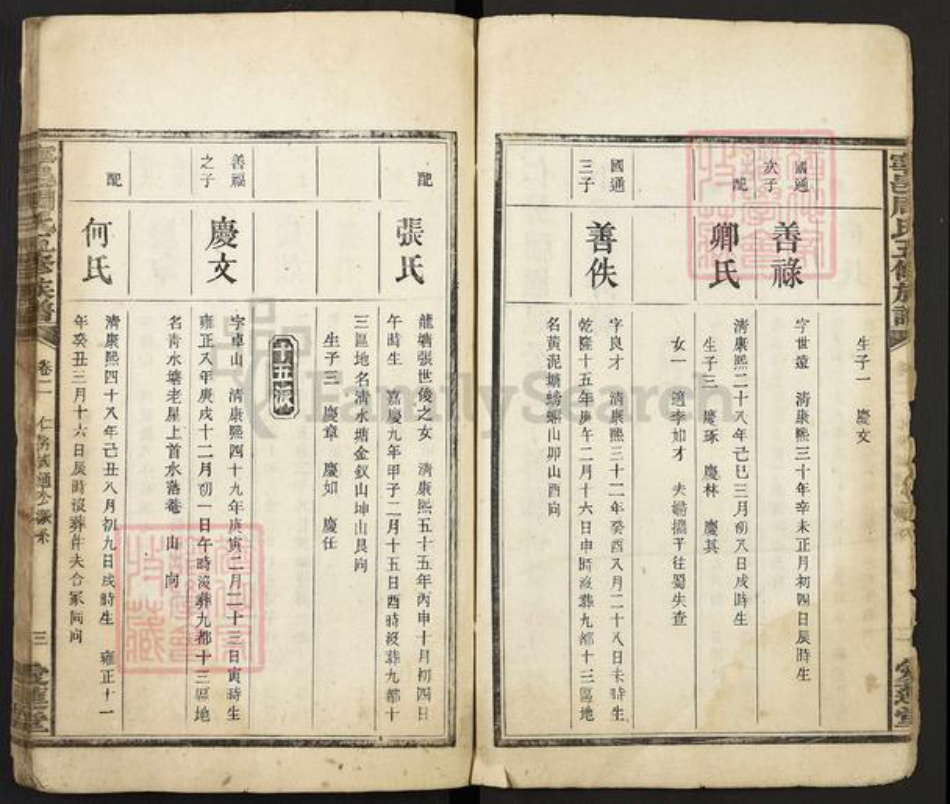 生子一 慶文
國通次子
善祿
字世遠 清康熙三十年辛未正月初四日辰時生
配
卿氏
清康熙二十八年己巳三月初八日戌時生
生子三 慶琢 慶林 慶其
女一 適李如才 夫婦攜子往蜀失查
國通三子
善佚
字良才 清康熙三十二年癸酉八月二十八日未時生
乾隆十五年庚午二月十六日申時沒葬九都十三區地
名黃泥塘螃蟹山卯山酉向
配
張氏
龍塘張世俊之女 清康熙五十五年丙申十月初四日
午時生 嘉慶九年甲子二月十五日酉時沒葬九都十
三區地名清水塘金釵山坤山艮向
生子三 慶章 慶如 慶任
十五派
善福之子
慶文
字卓山 清康熙四十九年庚寅二月二十三日寅時生
雍正八年庚戌十二月初一日午時沒葬九都十三區地
名清水塘老屋上首水落菴 山 向
配
何氏
清康熙四十八年己丑八月初九日戌時生 雍正十一
年癸丑三月十六日辰時沒葬件夫合冢同向
卷二
三
愛蓮堂
周氏五修族譜
FamilySearch